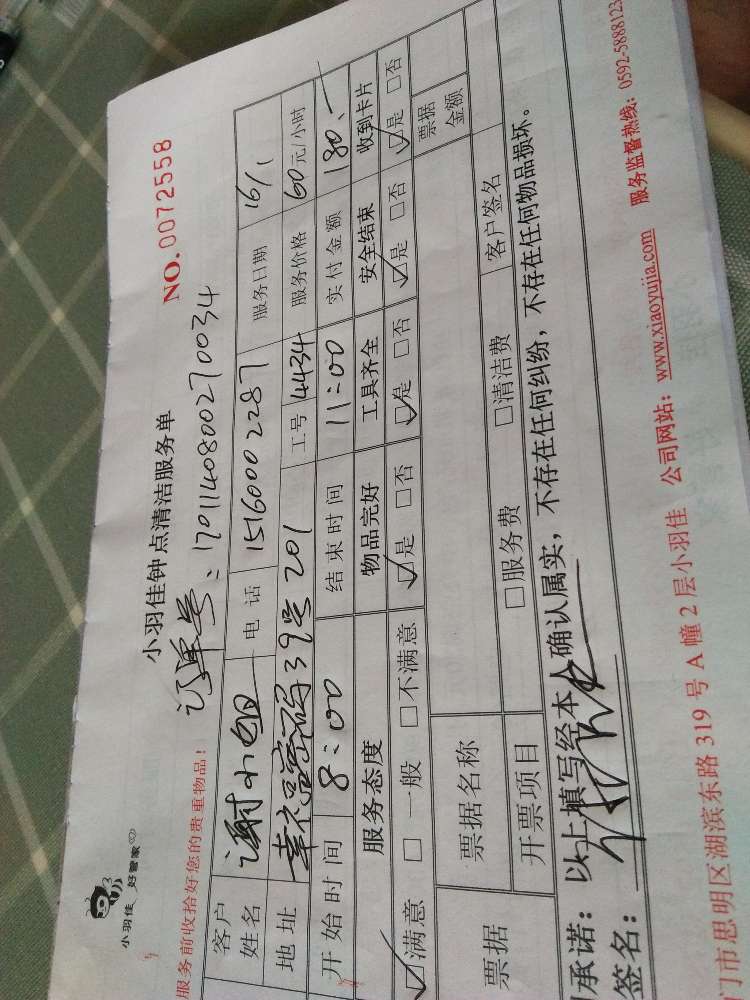 小羽佳 好管家
小羽佳钟点清洁服务单
NO. 0072558
服务前收拾好您的贵重物品!
订单号: 1701140800270034
客户姓名 谢小姐 电话 15160002287 服务日期 16/1
地址 幸福密码39号201 工号 4434 服务价格 60元/小时
开始时间 8:00 结束时间 11:00 实付金额 180.-
服务态度 物品完好 工具齐全 安全结束 收到卡片
☑满意 □一般 □不满意 ☑是 □否 ☑是 □否 ☑是 □否 ☑是 □否
票据 票据名称 票据金额
开票项目 □服务费 □清洁费 客户签名
承诺: 以上填写经本人确认属实, 不存在任何纠纷, 不存在任何物品损坏。
签名:
门市思明区湖滨东路319号A幢2层小羽佳 公司网站: www.xiaoyujia.com 服务监督热线: 0592-5888123